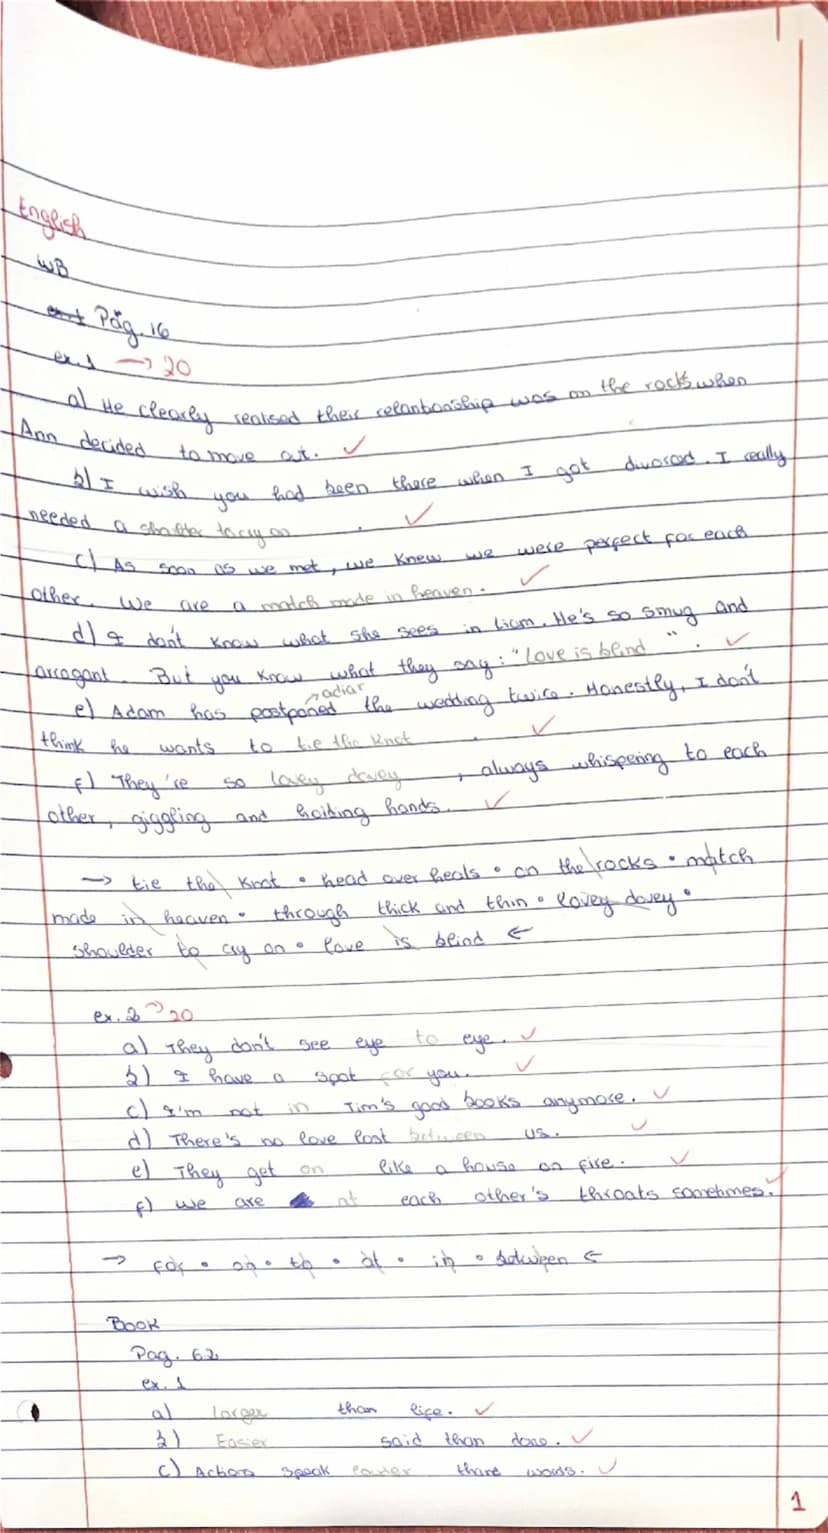 English
WB
Pág. 16
ex. 1 → 20
a) He clearly realised their relantionship was on the rocks when
Ann decided to move out. ✓
b) I wish you had been there when I got divorced. I really
needed a to cry on . ✓
c) As soon as we met, we knew we were perfect for each
other. We are a match made in heaven. ✓
d) I don't know what she sees in Liam. He's so smug and
arrogant. But you know what they say: "Love is blind ". ✓
→ adiar
e) Adam has postponed the wedding twice. Honestly, I don't
think he wants to tie the knot . ✓
f) They're so lovey dovey , always whispering to each
other, giggling and holding hands. ✓
→ tie the knot • head over heals • on the rocks • match
made in heaven • through thick and thin • lovey dovey •
shoulder to cry on • love is blind ←
ex. 2 → 20
a) They don't see eye to eye. ✓
b) I have a spot for you. ✓
c) I'm not in Tim's good books anymore. ✓
d) There's no love lost between us. ✓
e) They get on like a house on fire. ✓
f) We are at each other's throats sometimes. ✓
→ for • on • to • at • in • between ←
Book
Pag. 62
ex. 1
a) larger than life. ✓
b) Easier said than done. ✓
c) Actions speak louder thant words. ✓
1